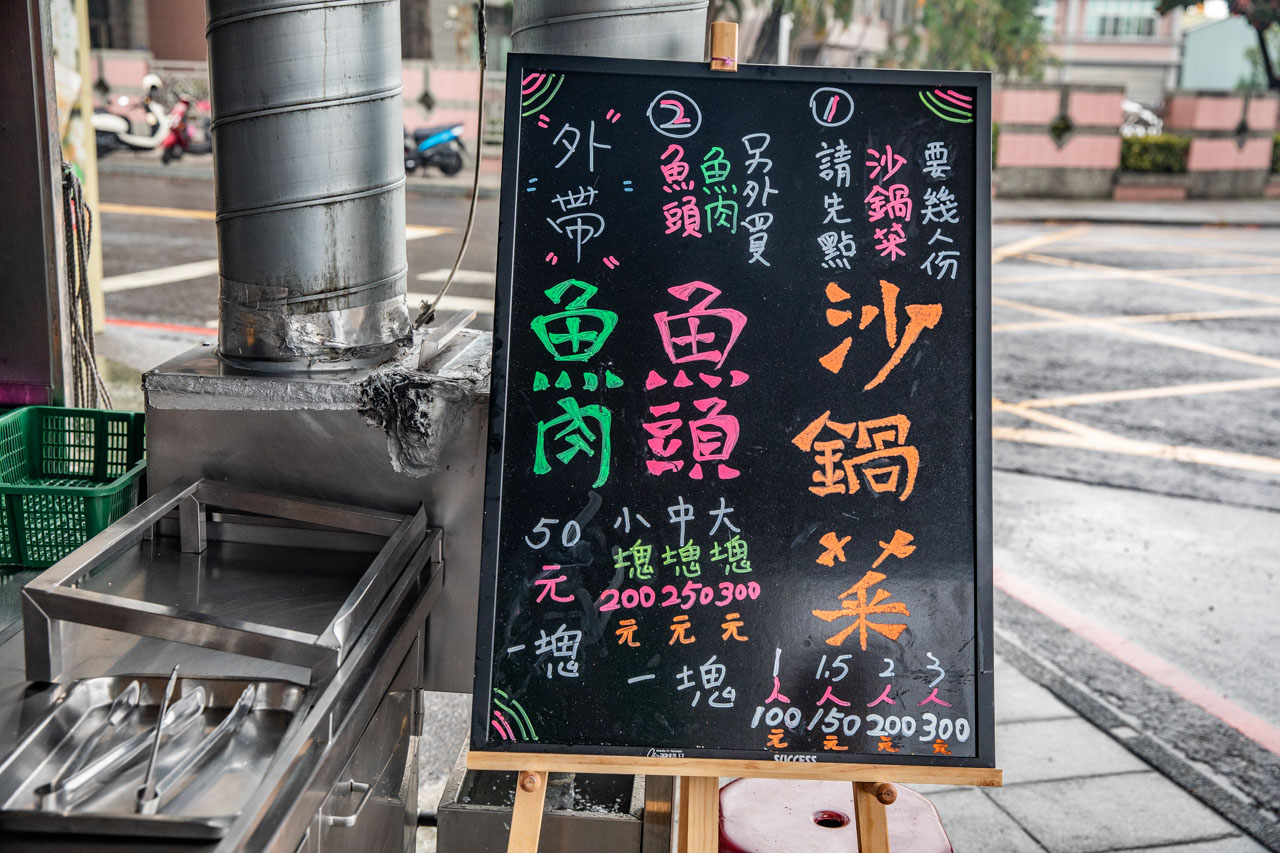 ①
請先點
沙鍋菜
要幾人份
沙鍋菜
1人
100元
1.5人
150元
2人
200元
3人
300元
②
魚頭
魚肉
另外買
魚頭
小塊
200元
中塊
250元
大塊
300元
一塊
"外帶"
魚肉
50元
一塊
SUCCESS